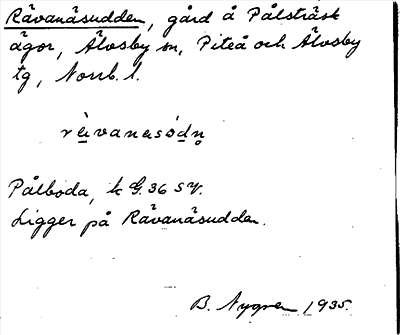 Rävanäsudden, gård å Pålsträsk
ägor, Älvsby sn, Piteå och Älvsby
tg, Norrb. l.
Pålboda, k G. 36 SV.
Ligger på Rävanäsudden.
B. Nygren 1935.